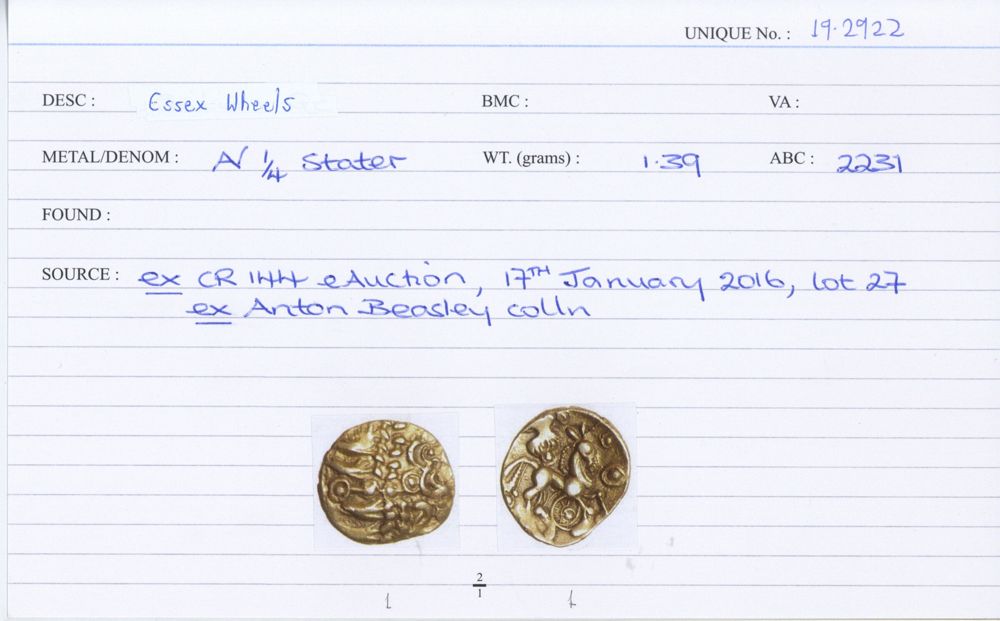 UNIQUE No. : 19.2922
DESC : Essex Wheels BMC : VA :
METAL/DENOM : AV 1/4 Stater WT. (grams) : 1.39 ABC : 2231
FOUND :
SOURCE : ex CR 144 eAuction, 17TH January 2016, lot 27
ex Anton Beasley colln
2/1
1 1